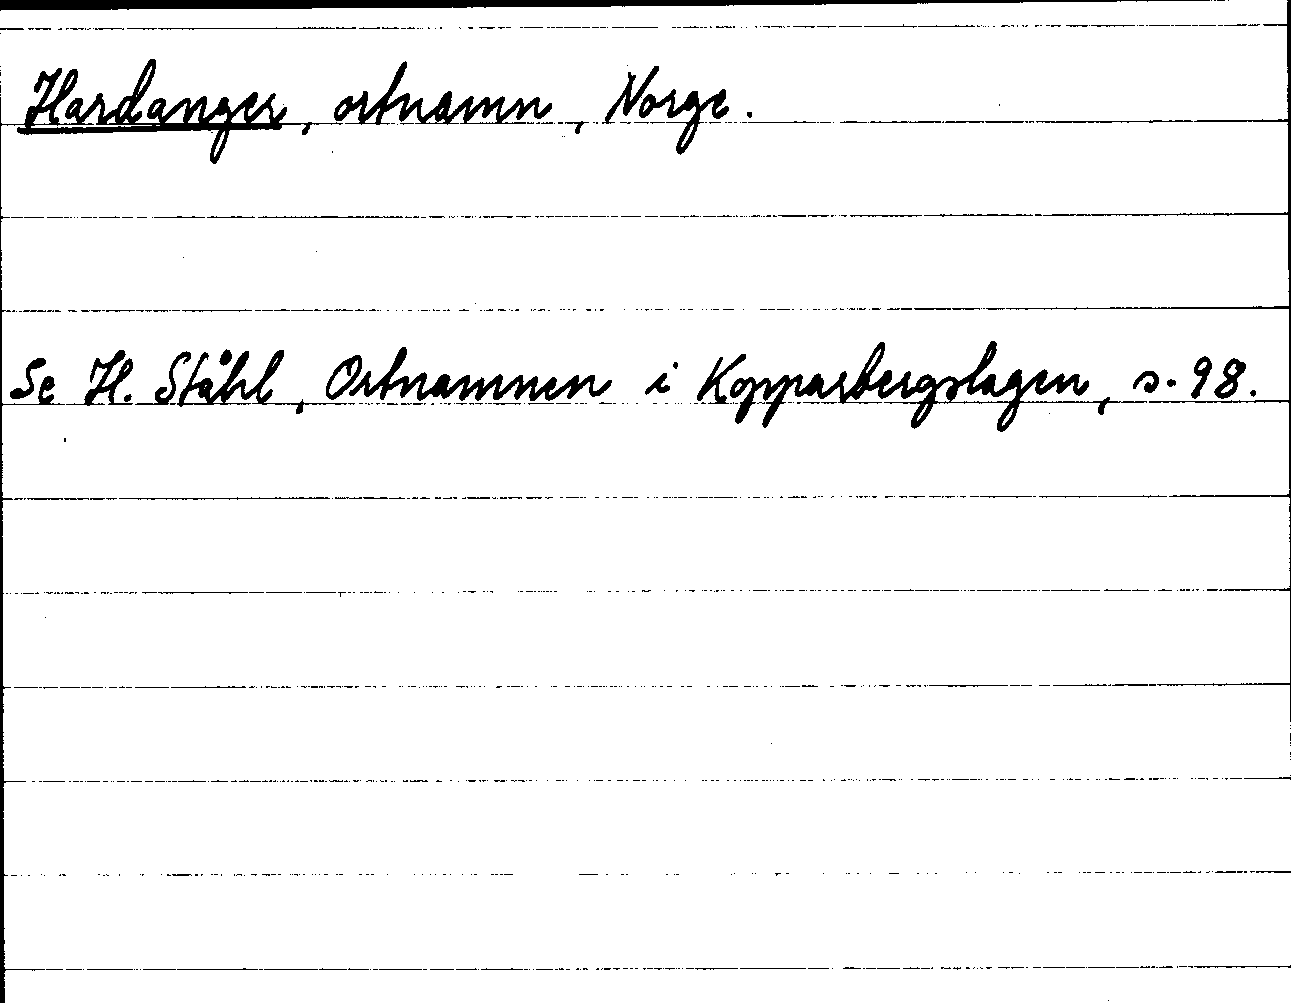 Hardanger, ortnamn, Norge.
Se H. Ståhl, Ortnamnen i Kopparbergslagen, s. 98.